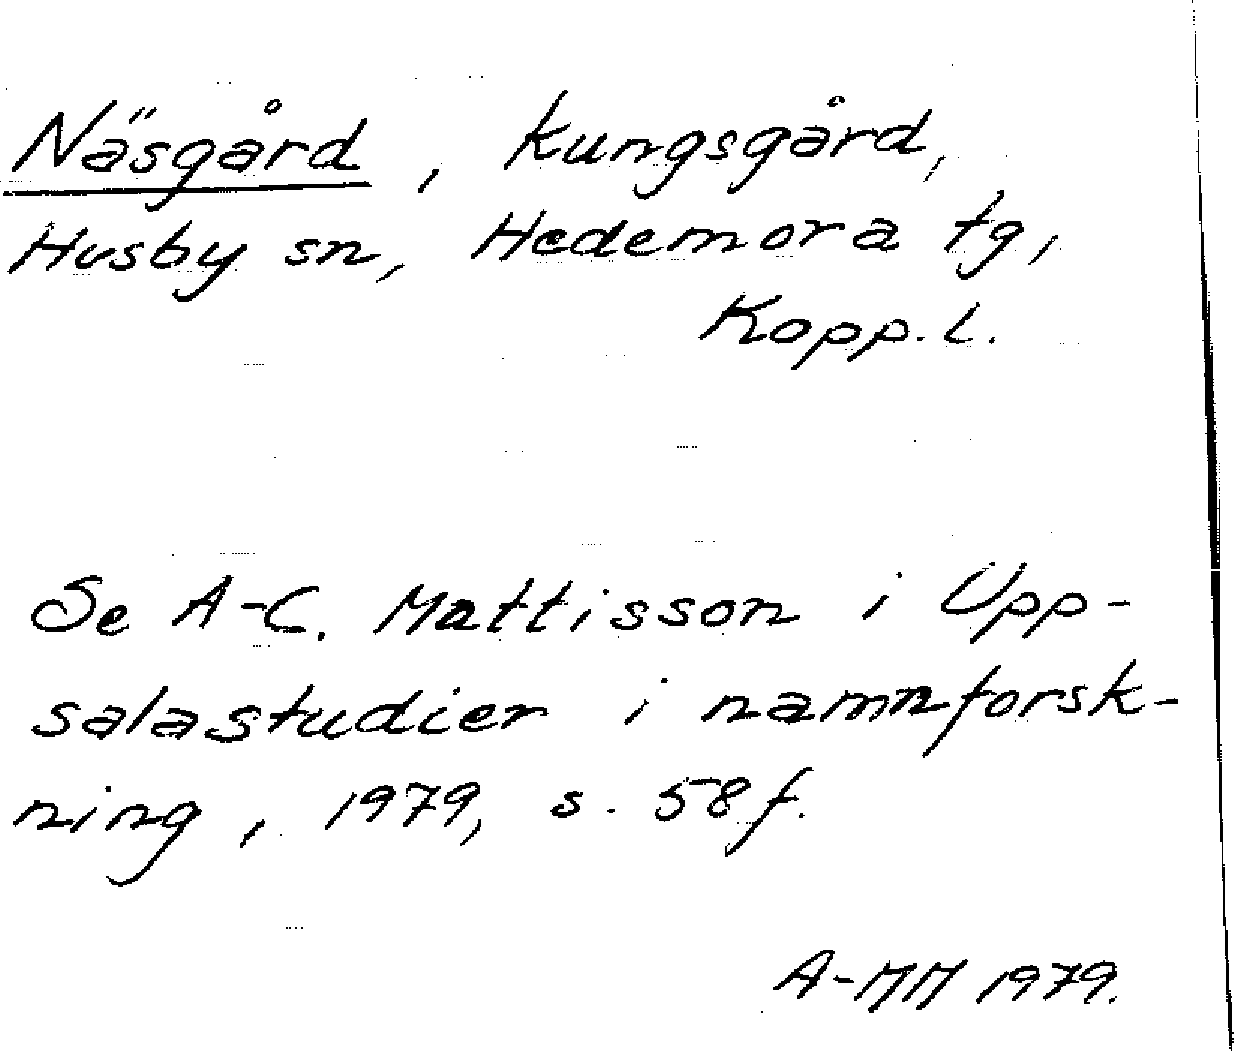 Näsgård, kungsgård,
Husby sn, Hedemora tg,
Kopp. l.
Se A-C. Mattisson i Upp-
salastudier i namnforsk-
ning, 1979, s. 58 f.
A-MM 1979.